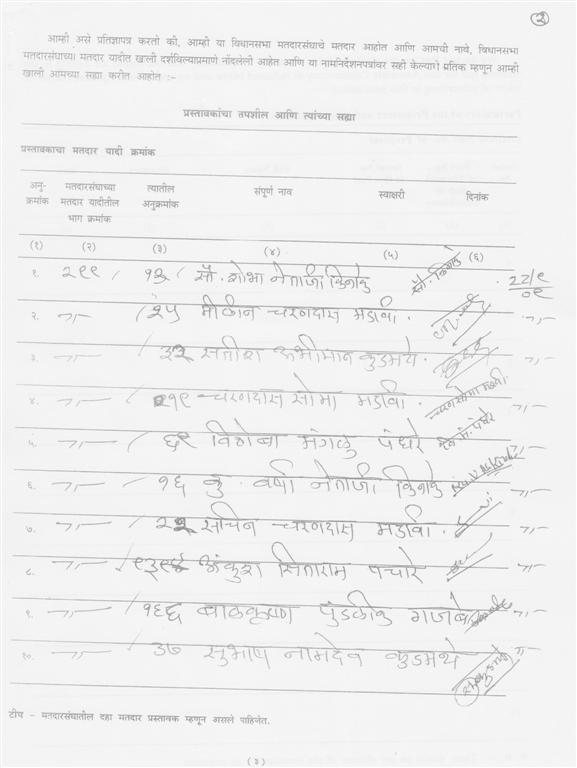 २
आम्ही असे प्रतिज्ञापत्र करतो की, आम्ही या विधानसभा मतदारसंघाचे मतदार आहोत आणि आमची नावे, विधानसभा
मतदारसंघाच्या मतदार यादीत खाली दर्शविल्याप्रमाणे नोंदलेली आहेत आणि या नामनिर्देशनपत्रांवर सही केल्याचे प्रतिक म्हणून आम्ही
खाली आमच्या सह्या करीत आहोत :-
प्रस्तावकांचा तपशील आणि त्यांच्या सह्या
प्रस्तावकाचा मतदार यादी क्रमांक
अनु- मतदारसंघाच्या त्यातील संपूर्ण नाव स्वाक्षरी दिनांक
क्रमांक मतदार यादीतील अनुक्रमांक
भाग क्रमांक
(१) (२) (३) (४) (५) (६)
१. २९९ / १३ / सौ. शोभा नेताजी किनाके सौ. 22/९
०९
२. -,,- / २५ मीलीन चरणदास मडावी. -,,-
३. -,,- / सतीश अभीमान कुडमथे. -,,-
४. -,,- / चरणदास सोमा मडावी. -,,-
५. -,,- / ६९ विठोबा मंगळु पंधरे -,,-
६. -,,- / १६ कु. वर्षा नेताजी किनाके -,,-
७. -,,- / सचिन चरणदास मडावी. -,,-
८. -,,- / अंकुश सिताराम पचारे -,,-
९. -,,- / १६६ बाळकृष्ण पुंडलीक गजबे -,,-
१०. -,,- ३७ सुभाष नामदेव कुडमथे -,,-
टीप - मतदारसंघातील दहा मतदार प्रस्तावक म्हणून असले पाहिजेत.
(३)